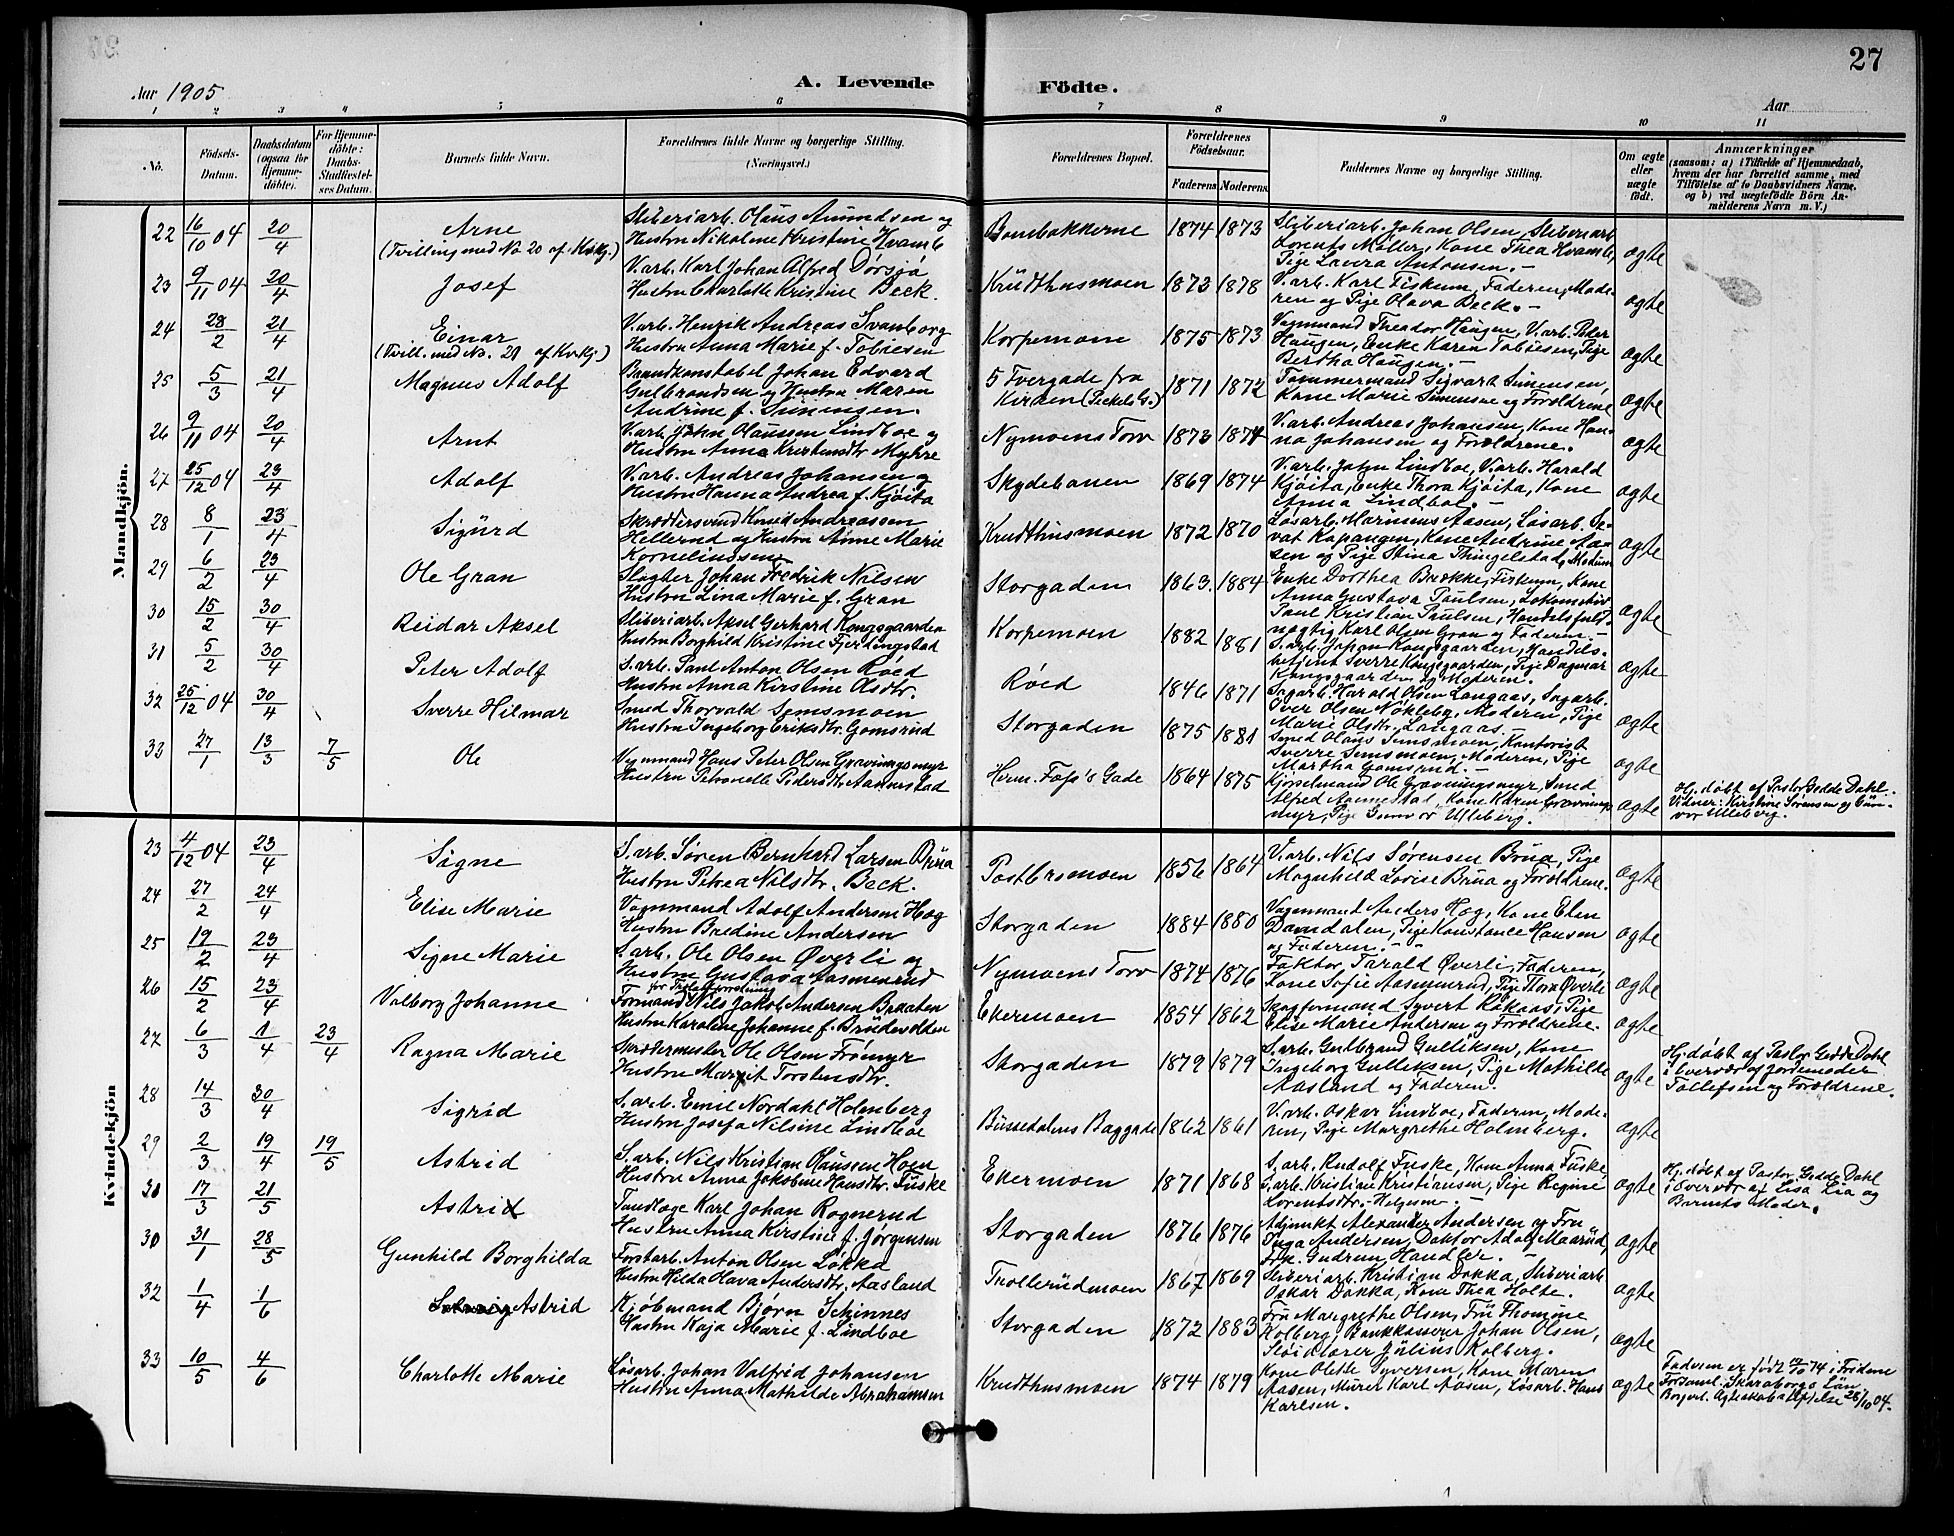 27
Aar 1905
A. Levende
Födte.
Aar
1 2 3 4 5 6 7 8 9 10 11
No.
Födsels-Datum.
Daabsdatum (ogsaa for Hjemme-döbte).
For Hjemme-döbte: Daabs-Stadfæstel-ses Datum.
Barnets fulde Navn.
Forældrenes fulde Navne og borgerlige Stilling. (Næringsvei.)
Forældrenes Bopæl.
Forældrenes Födselsaar.
Faderens Moderens
Faddernes Navne og borgerlige Stilling.
Om ægte eller uægte født.
Anmærkninger
(saasom: a) i Tilfælde af Hjemmedaab, hvem der har forrettet samme, med Tilföielse af to Daabsvidners Navne, og b) ved uægtefödte Börn An-melderens Navn m. V.)
Mandkjön.
22 16/10 04 20/4 Arne (Tvilling med No 20 af Kvkj.) Sliberiarb. Olaus Amundsen og Hustru Nikoline Kristine Kvamb Bombakkerne 1874 1873 Sliberiarb. Johan Olsen, Sliberiarb. Lorents Møller, Kone Thea Kvamb, Pige Laura Antonsen. - ægte
23 9/11 04 20/4 Josef V.arb. Karl Johan Alfred Dørsjø Hustru Charlotte Kristine Beck. Krudthusmoen 1873 1878 V.arb. Karl Fiskum, Faderen, Mode-ren og Pige Olava Beck. - ægte
24 28/2 21/4 Einar (Tvill. med No. 21 af Kvkj.) V.arb. Henrik Andreas Svanborg Hustru Anna Marie f. Tobiesen Korpemoen 1875 1873 Vognmand Theodor Haugen, V.arb. Peter Haugen, Enke Karen Tobiesen, Pige Bertha Haugen. - ægte
25 5/3 21/4 Magnus Adolf Brandkonstabel Johan Edvard Gulbrandsen og Hustru Maren Andrine f. Simensen. 5 Tvergade fra Kirken (Peckels G.) 1871 1872 Tømmermand Sigvart Simensen, Kone Marie Simensen og Forældrene ægte
26 9/11 04 20/4 Arnt V.arb. John Olausen Lindboe og Hustru Anna Kristiansdtr Myhre Nymoens Torv 1873 1874 V.arb. Andreas Johansen, Kone Han-na Johansen og Forældrene. ægte
27 25/12 04 23/4 Adolf V.arb. Andreas Johansen og Hustru Hanna Andrea f. Kjøita Skydebanen 1869 1874 V.arb. John Lindboe, V.arb. Harald Kjøita, Enke Thora Kjøita, Kone Anna Lindboe. - ægte
28 8/1 23/4 Sigurd Skræddersvend Knud Andreassen Hellerud og Hustru Anne Marie Korneliussen Krudthusmoen 1872 1870 Løsarb. Marinius Aasen, Løsarb. Se-vat Kapangen, Kone Andrine Aa-sen og Pige Stina Thingelstad, Modum ægte
29 6/2 23/4 Ole Gran Slagter Johan Fredrik Nilsen Hustru Lina Marie f. Gran Storgaden 1863. 1884 Enke Dorthea Brække, Fiskum, Kone Anna Gustava Paulsen, Lokomotiv Paul Kristian Paulsen, Handelsfuld-mægtig Karl Olsen Gran og Faderen. - ægte
30 15/2 30/4 Reidar Aksel Sliberiarb. Aksel Gerhard Kongsgaarden Hustru Borghild Kristine Fjerdingstad Korpemoen 1882 1881 S.arb. Johan Kongsgaarden, Handels-betjent Sverre Kongsgaarden, Pige Dagmar Kongsgaarden og Moderen. ægte
31 5/2 30/4 Peter Adolf S.arb. Paul Anton Olsen Røed Hustru Anna Kirstine Olsdtr. Røed 1846 1871 Sagarb. Harald Olsen Langaas, Sagarb. Iver Olsen Nøkleby, Moderen, Pige Marie Olsdtr. Langaas. - ægte
32 25/12 04 30/4 Sverre Hilmar Smed Thorvald Semsmoen Hustru Ingeborg Eriksdtr. Gomsrud Storgaden 1875 1881 Smed Olaus Semsmoen, Kontorist Sverre Semsmoen, Moderen, Pige Martha Gomsrud. - ægte
33 27/1 13/3 7/5 Ole Vognmand Hans Peter Olsen Gravningsmyr Hustru Petronelle Pedersdtr Aannestad Herm. Foss's Gade 1864 1875 Kjørselmand Ole Gravningsmyr, Smed Alfred Aannestad, Kone Karen Gravnings-myr, Pige Gunvor Ulleberg. ægte Hj. døbt af Pastor Gedde Dahl. Vidner: Kirstine Sørensen og Gun-vor Ulleberg.
Kvindekjön
23 4/12 04 23/4 Signe S.arb. Søren Bernhard Larsen Brua Hustru Petrea Nilsdtr. Beck. Postbromoen 1856 1864 V.arb. Nils Sørensen Brua, Pige Magnhild Lovise Brua og Forældrene. ægte
24 27/2 24/4 Elise Marie Vognmand Adolf Andersen Hæg Hustru Bredine Andersen Storgaden 1884 1880 Vognmand Anders Hæg, Kone Elen Damdalen, Pige Konstance Hansen og Faderen. - ægte
25 19/2 23/4 Signe Marie S.arb. Ole Olsen Øverli og Hustru Gustava Aasmunrud Nymoens Torv 1874 1876 Faktor Tarald Øverli, Faderen, Kone Sofie Aasmunrud, Pige Thora Øverli ægte
26 15/2 23/4 Valborg Johanne Formand Nils Jakob Andersen Braaten Hustru Karoline Johanne f. Brudevolden Ekermoen 1854 1862 Skogformand Syvert Rakaas, Pige Elise Marie Andersen og Forældrene. ægte
27 6/3 1/4 23/4 Ragna Marie Skrædermester Ole Olsen Frømyr Hustru Margit Torstensdtr. Storgaden 1879 1879 S.arb. Gulbrand Gulliksen, Kone Ingeborg Gulliksen, Pige Mathilde Aasland og Faderen. ægte Hj. døbt af Pastor Gedde Dahl i Overvær af Jordemoder Tollefsen og Forældrene.
28 14/3 30/4 Sigrid S.arb. Emil Nordahl Holmberg Hustru Josefa Nilsine Lindboe Bussedalens Baggade 1862 1861 V.arb. Oskar Lindboe, Faderen, Mode-ren, Pige Margrethe Holmberg. ægte
29 2/3 19/4 19/5 Astrid S.arb. Nils Kristian Clausen Hoen Hustru Anna Jakobine Hansdtr. Fuske Ekermoen 1871 1868 S.arb. Rudolf Fuske, Kone Anna Fuske S.arb. Kristian Kristiansen, Pige Regine Lorentsdtr. Helgesen. - ægte Hj. døbt af Pastor Gedde Dahl i Overvær af Lisa Lia og Barnets Moder.
30 17/3 21/5 Astrid Tandlæge Karl Johan Rognerud Hustru Anna Kirstine f. Jørgensen Storgaden 1876 1876 Adjunkt Alexander Andersen og Fru Inga Andersen, Doktor Adolf Maarud, Frk. Gudrun Handler. - ægte
30 31/1 28/5 Gunhild Borghilda Forstarb. Anton Olsen Løkka Hustru Hilda Olava Andersdtr. Aasland Trollerudmoen 1867 1869 Sliberiarb. Kristian Dokka, Sliberiarb Oskar Dokka, Kone Thea Holte. ægte
32 1/4 1/6 Astrid Kjøbmand Bjørn Schinnes Hustru Kaja Marie f. Lindboe Storgaden 1872 1883 Fru Margrethe Olsen, Fru Thomine Kolberg, Bankkasserer Johan Olsen, Sløidlærer Julius Kolberg. ægte
33 10/5 4/6 Charlotte Marie Løsarb. Johan Valfrid Johansen Hustru Anna Mathilde Abrahamsen Krudthusmoen 1874 1879 Kone Olette Syversen, Kone Maren Aasen, Murer Karl Aasen, Løsarb. Hans Karlsen. ægte Faderen er født 12/10 74 i Fridene Forsaml. Skaraborgs Län Borgerl. Ægteskabsløftelse 28/10 04.